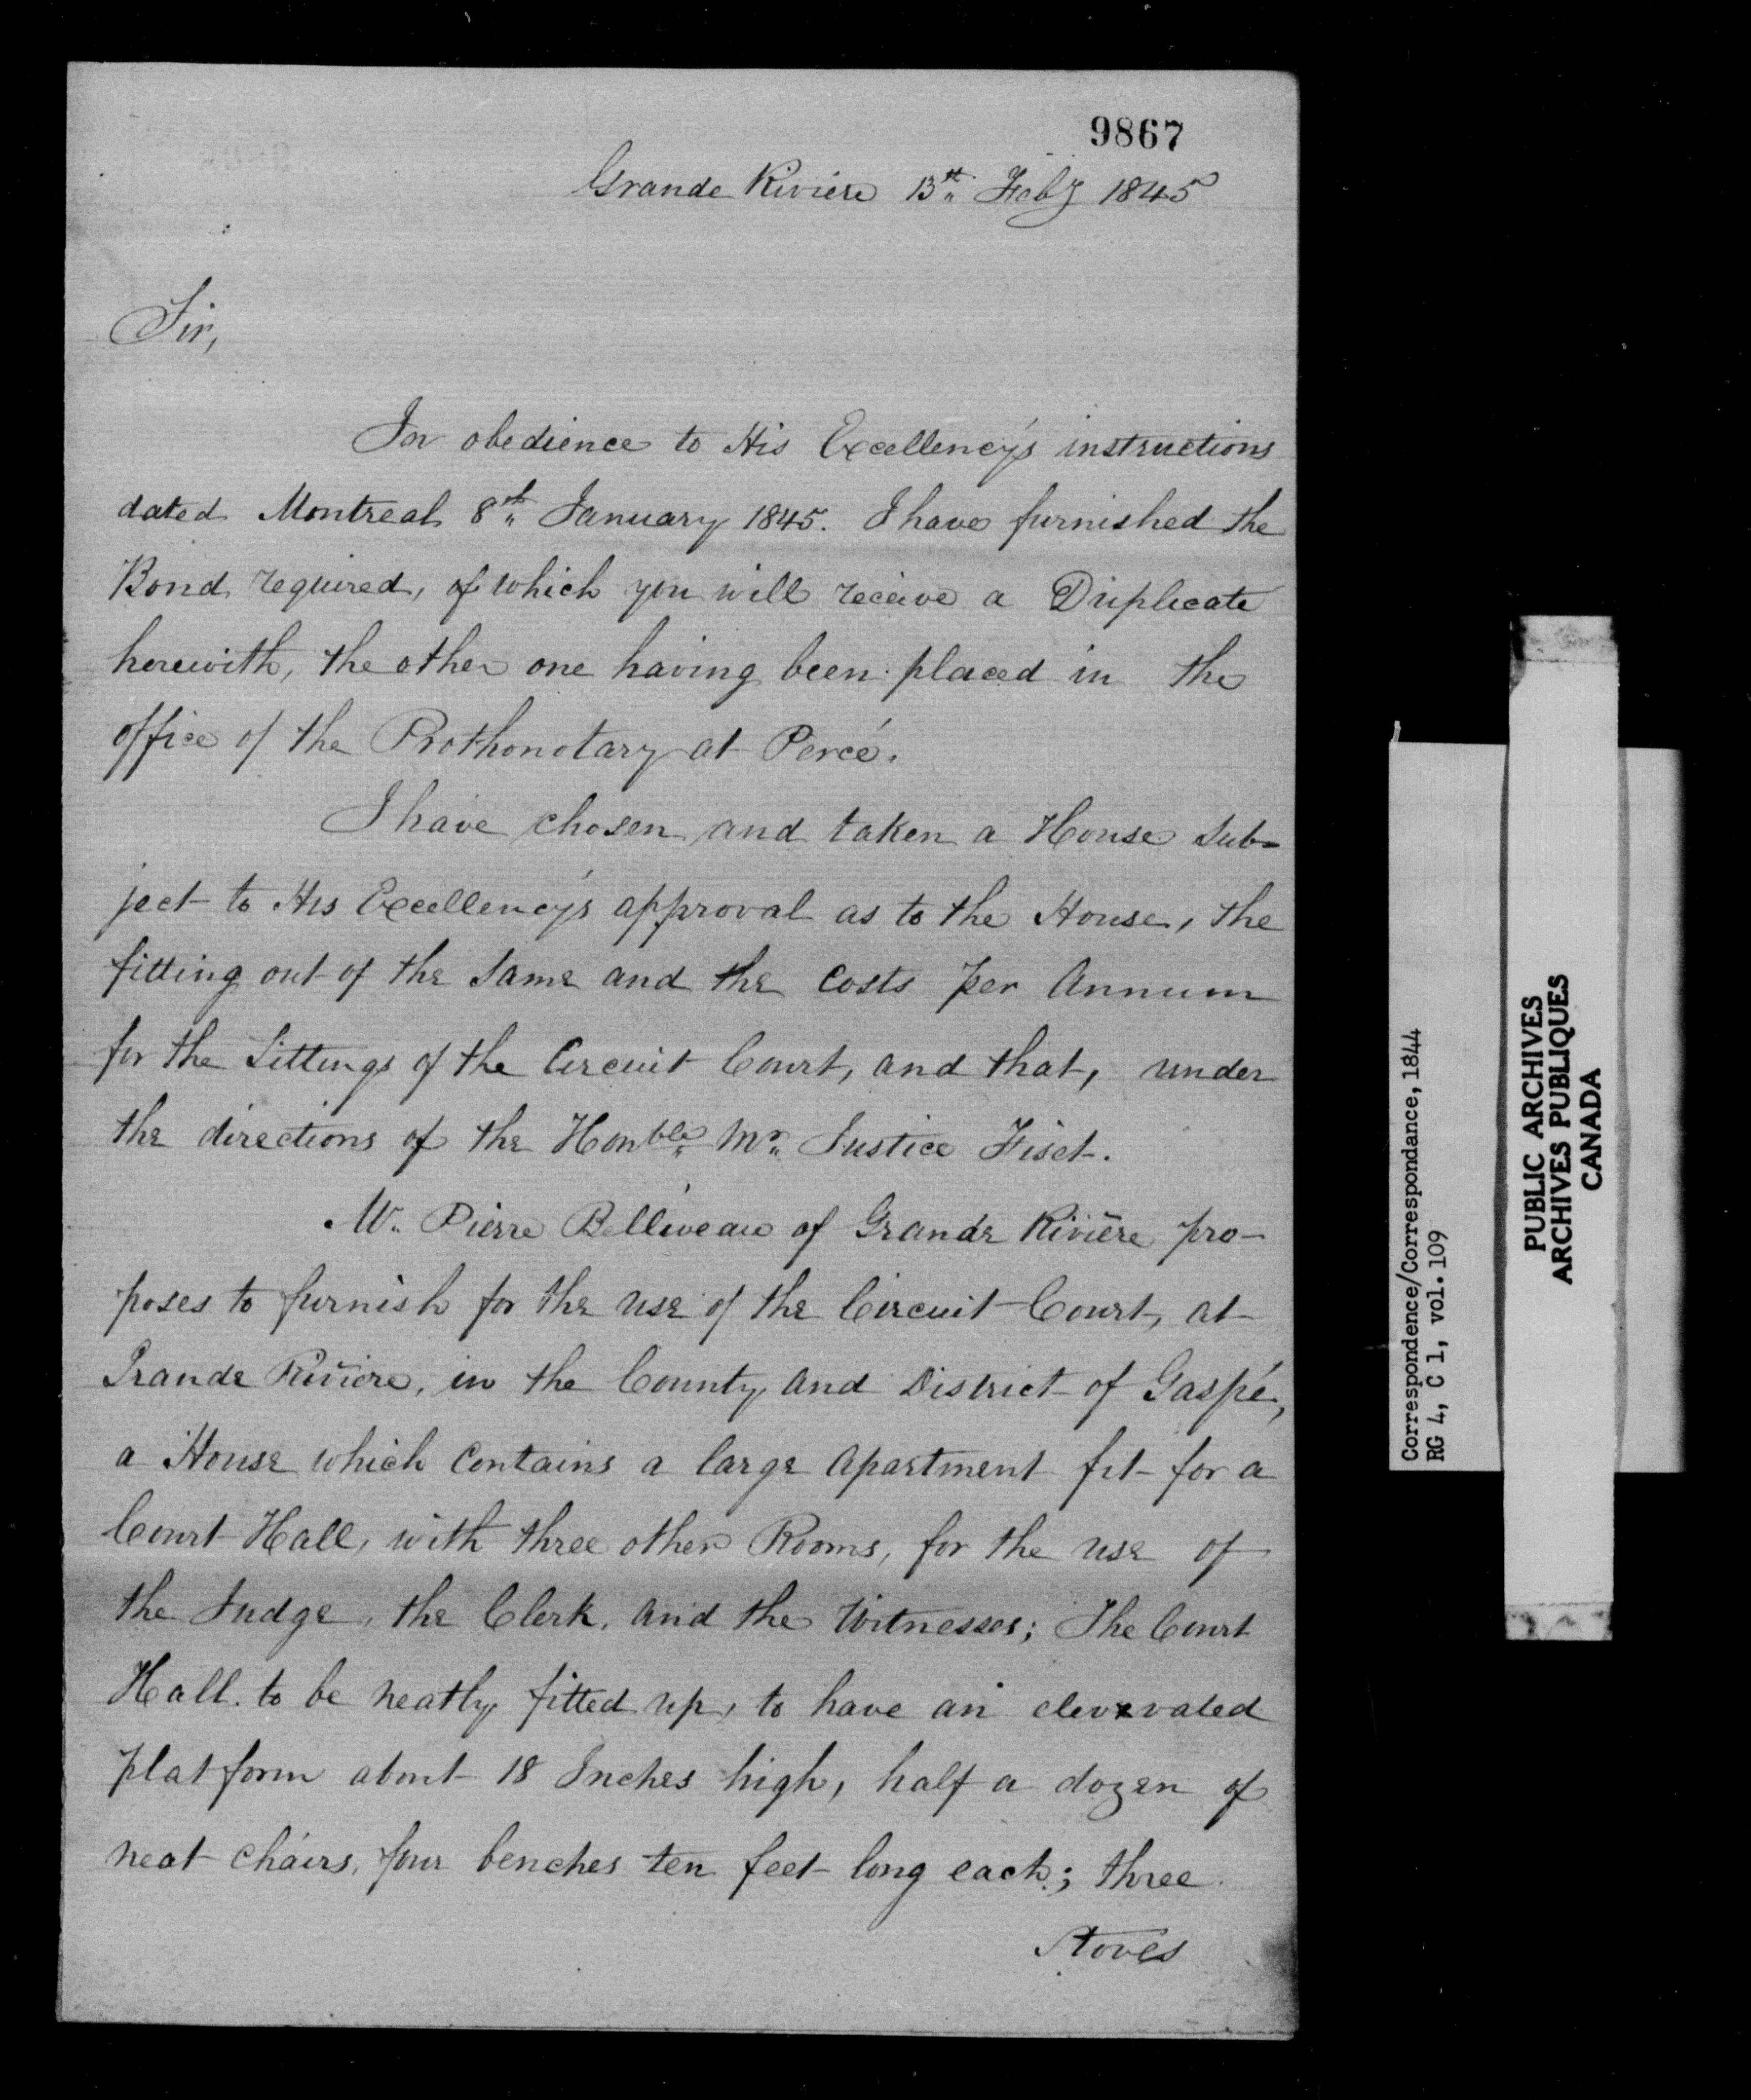 9867
Grande Rivière 13th Feby 1845
Sir,
In obedience to His Excellency's instructions
dated Montreal 8th January 1845. I have furnished the
Bond required, of which you will receive a Duplicate
herewith, the other one having been placed in the
office of the Prothonotary at Percé.
I have chosen and taken a House sub-
ject to His Excellency's approval as to the House, the
fitting out of the same and the Costs per Annum
for the Sittings of the Circuit Court, and that, under
the directions of the Honble Mr Justice Fiset.
Mr. Pierre Belliveau of Grande Rivière pro-
poses to furnish for the use of the Circuit Court, at
Grande Rivière, in the County and District of Gaspé,
a House which Contains a large Apartment fit for a
Court Hall, with three other Rooms, for the use of
the Judge, the Clerk, and the Witnesses; The Court
Hall to be neatly fitted up, to have an elevxvated
platform about 18 Inches high, half a dozen of
neat chairs, four benches ten feet long each; three
stoves
Correspondence/Correspondance, 1844
RG 4, C 1, vol. 109
PUBLIC ARCHIVES
ARCHIVES PUBLIQUES
CANADA